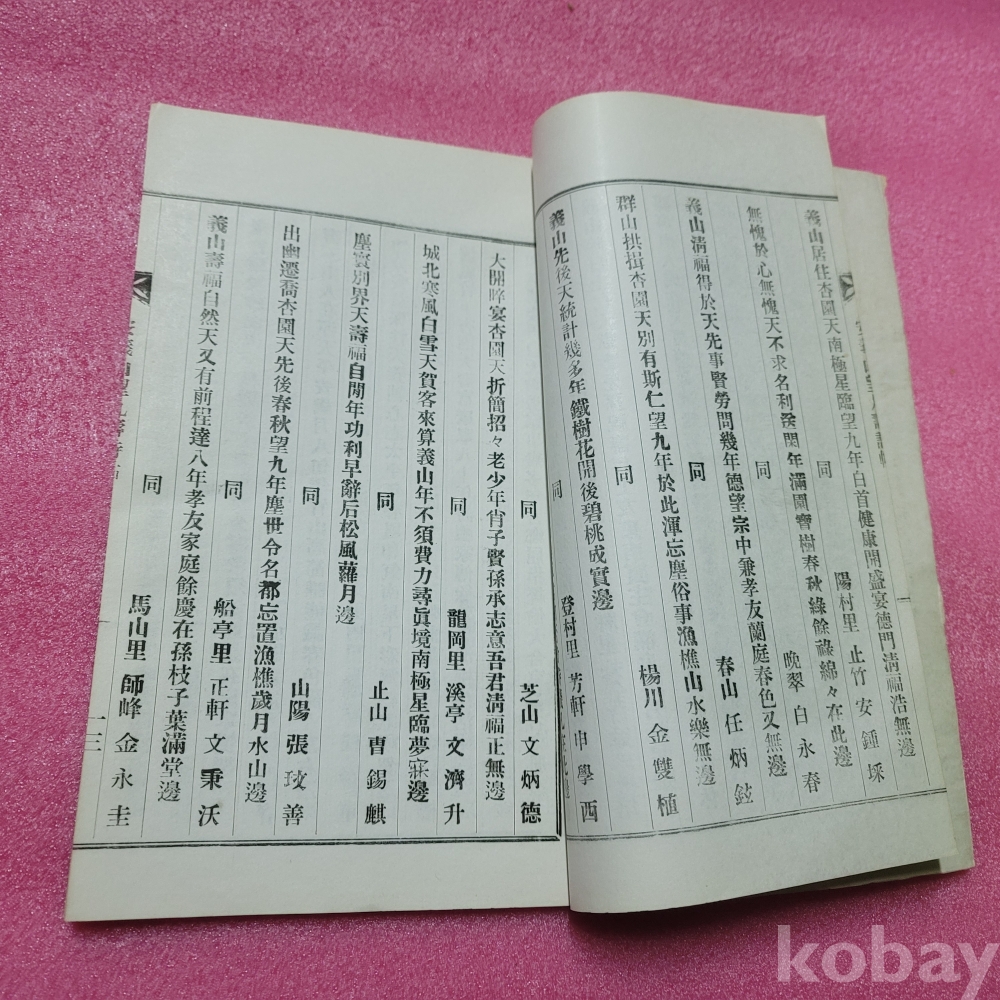 義山居住杏園天南極星臨望九年白首健康開盛宴德門淸福浩無邊
同 陽村里 止竹 安鍾埰
無愧於心無愧天不求名利送閑年滿園寶樹春秋綠餘祿綿々在此邊
同 晚翠 白永春
義山淸福得於天先事賢勞問幾年德望宗中兼孝友蘭庭春色又無邊
同 春山 任炳鉉
群山拱揖杏園天別有斯仁望九年於此渾忘塵俗事漁樵山水樂無邊
同 楊川 金雙植
義山先後天統計幾多年鐵樹花開後碧桃成實邊
同 登村里 芳軒 申學西
大開晬宴杏園天折簡招々老少年肖子賢孫承志意吾君淸福正無邊
同 芝山 文炳德
城北寒風白雪天賀客來算義山年不須費力尋眞境南極星臨夢寐邊
同 龍岡里 溪亭 文濟升
塵寰別界天壽福自閒年功利早辭后松風蘿月邊
同 止山 曺錫麒
出幽遷喬杏園天先後春秋望九年塵世令名都忘置漁樵歲月水山邊
同 山陽 張玟善
義山壽福自然天又有前程達八年孝友家庭餘慶在孫枝子葉滿堂邊
同 船亭里 正軒 文秉沃
同 馬山里 師峰 金永圭
一三
kobay